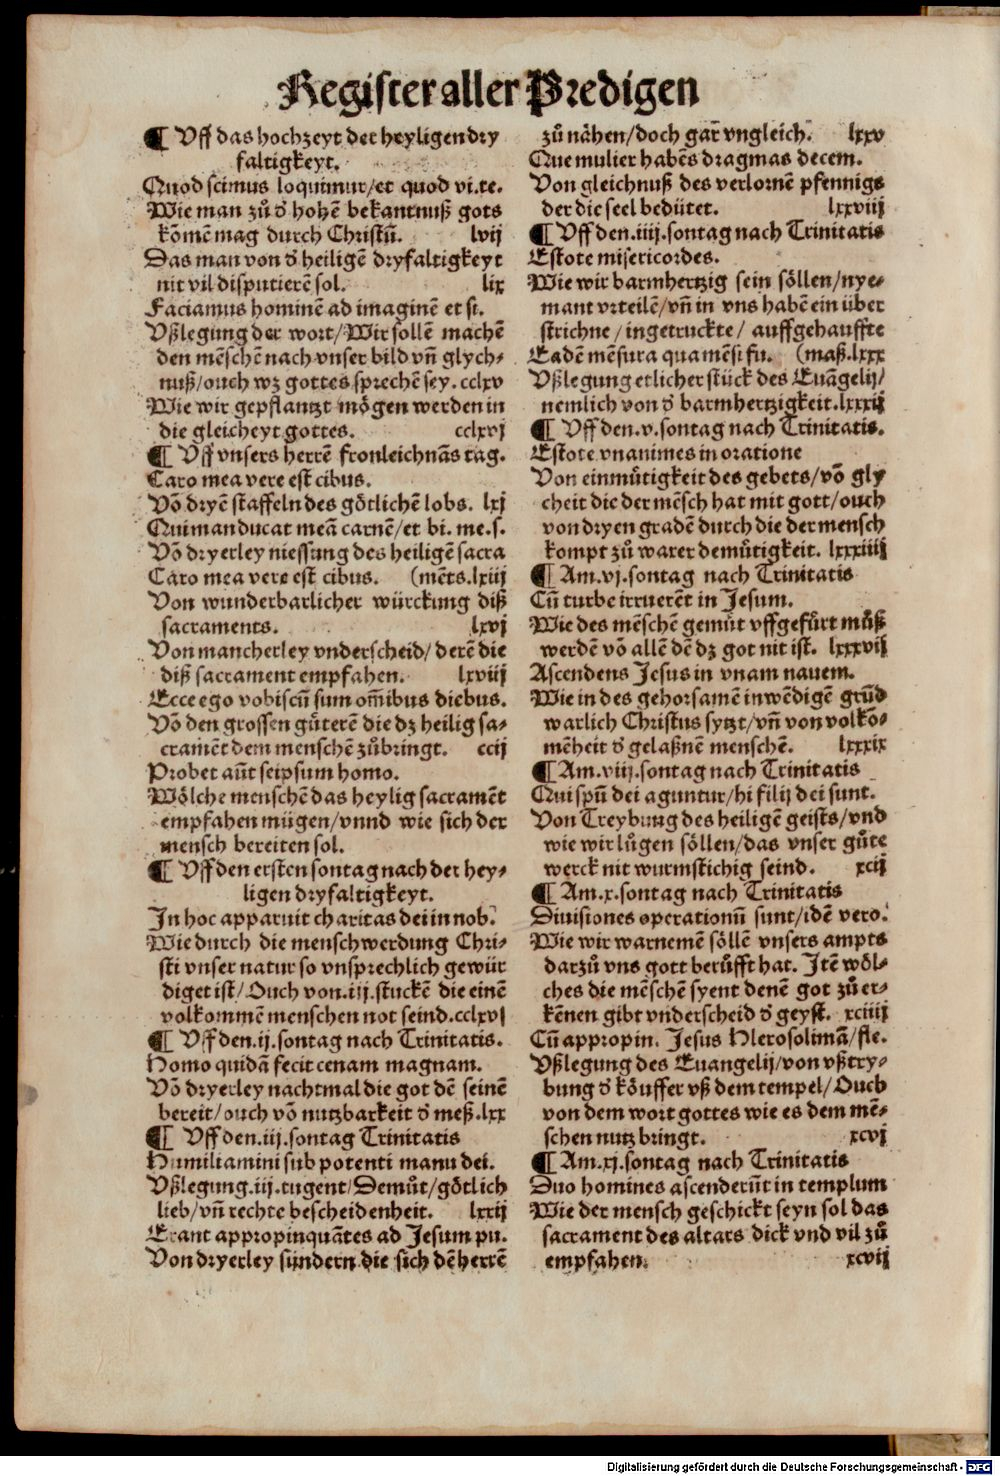 Register aller Predigen
¶ Vff das hochzeyt der heyligen dry
faltigkeyt.
Quod scimus loquimur/et quod vi.te.
Wie man zů d̄ hohē bekantnuß gots
kōmē mag durch Christū. lvij
Das man von d̄ heiligē dryfaltigkeyt
nit vil disputierē sol. lix
Faciamus hominē ad imaginē et si.
Vßlegung der wort/Wir sollē machē
den mēschē nach vnser bild vn̄ glych-
nuß/ouch wz gottes sprechē sey. cclxv
Wie wir gepflantzt mögen werden in
die gleicheyt gottes. cclxvj
¶ Vff vnsers herrē fronleichnās tag.
Caro mea vere est cibus.
Vō dryē staffeln des götlichē lobs. lxj
Qui manducat meā carnē/et bi. me.s.
Vō dryerley niessung des heiligē sacra
Caro mea vere est cibus. (mēts.lxiij
Von wunderbarlicher würckung diß
sacraments. lxvj
Von mancherley vnderscheid/ derē die
diß sacrament empfahen. lxviij
Ecce ego vobiscū sum om̄ibus diebus.
Vō den grossen gůterē die dz heilig sa-
cramēt dem menschē zůbringt. ccij
Probet aūt seipsum homo.
Wölche menschē das heylig sacramēt
empfahen mügen/vnnd wie sich der
mensch bereiten sol.
¶ Vff den ersten sontag nach der hey-
ligen dryfaltigkeyt.
In hoc apparuit charitas dei in nob.
Wie durch die menschwerdung Chri-
sti vnser natur so vnsprechlich gewür
diget ist/Ouch von.iij.stuckē die einē
volkommē menschen not seind.cclxvj
¶ Vff den.ij.sontag nach Trinitatis.
Homo quidā fecit cenam magnam.
Vō dryerley nachtmal die got dē seinē
bereit/ouch vō nutzbarkeit d̄ meß.lxx
¶ Vff den.iij.sontag Trinitatis
Humiliamini sub potenti manu dei.
Vßlegung.iij.tugent/Demůt/götlich
lieb/vn̄ rechte bescheidenheit. lxxij
Erant appropinquātes ad Jesum pu.
Von dryerley sündern die sich dē herrē
zů nåhen/doch gar vngleich. lxxv
Que mulier habēs dragmas decem.
Von gleichnuß des verlornē pfennigs
der die seel bedütet. lxxviij
¶ Vff den.iiij.sontag nach Trinitatis
Estote misericordes.
Wie wir barmhertzig sein söllen/nye-
mant vrteilē/vn̄ in vns habē ein über
strichne/ingetruckte/ auffgehauffte
Eadē mēsura qua mēsi fu. (maß.lxxx
Vßlegung etlicher stück des Euāgelij/
nemlich von d̄ barmhertzigkeit.lxxxij
¶ Vff den.v.sontag nach Trinitatis.
Estote vnanimes in oratione
Von einmůtigkeit des gebets/vō gly
cheit die der mēsch hat mit gott/ouch
von dryen gradē durch die der mensch
kompt zů warer demůtigkeit. lxxxiiij
¶ Am.vj.sontag nach Trinitatis
Cū turbe irruerēt in Jesum.
Wie des mēschē gemůt vffgefůrt můß
werdē vō allē dē dz got nit ist. lxxxvij
Ascendens Jesus in vnam nauem.
Wie in des gehorsamē inwēdigē grūd
warlich Christus sytzt/vn̄ von volkō-
mēheit d̄ gelaßnē menschē. lxxxix
¶ Am.viij.sontag nach Trinitatis
Qui spū dei aguntur/hi filij dei sunt.
Von Treybung des heiligē geists/vnd
wie wir lůgen söllen/das vnser gůte
werck nit wurmstichig seind. xcij
¶ Am.x.sontag nach Trinitatis
Diuisiones operationū sunt/idē vero.
Wie wir warnemē söllē vnsers ampts
darzů vns gott berůfft hat. Itē wöl-
ches die mēschē syent denē got zů er-
kēnen gibt vnderscheid d̄ geyst. xciiij
Cū appropin. Jesus Hierosolimā/fle.
Vßlegung des Euangelij/von vßtry-
bung d̄ köuffer vß dem tempel/Ouch
von dem wort gottes wie es dem mē-
schen nutz bringt. xcvj
¶ Am.xj.sontag nach Trinitatis
Duo homines ascenderūt in templum
Wie der mensch geschickt seyn sol das
sacrament des altars dick vnd vil zů
empfahen. xcvij
Digitalisierung gefördert durch die Deutsche Forschungsgemeinschaft - DFG